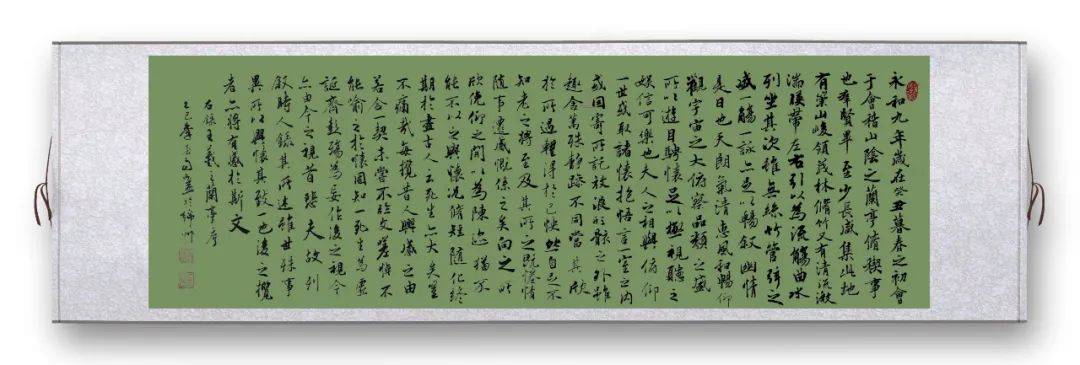 永和九年歲在癸丑暮春之初會
于會稽山陰之蘭亭脩禊事
也羣賢畢至少長咸集此地
有崇山峻領茂林脩竹又有清流激
湍暎帶左右引以為流觴曲水
列坐其次雖無絲竹管弦之
盛一觴一詠亦足以暢敘幽情
是日也天朗氣清惠風和暢仰
觀宇宙之大俯察品類之盛
所以遊目騁懷足以極視聽之
娛信可樂也夫人之相與俯仰
一世或取諸懷抱悟言一室之內
或因寄所託放浪形骸之外雖
趣舍萬殊靜躁不同當其欣
於所遇暫得於己快然自足不
知老之將至及其所之既惓情
隨事遷感慨係之矣向之所
欣俛仰之間以為陳迹猶不
能不以之興懷況脩短隨化終
期於盡古人云死生亦大矣豈
不痛哉每攬昔人興感之由
若合一契未嘗不臨文嗟悼不
能喻之於懷固知一死生為虛
誕齊彭殤為妄作後之視今
亦由今之視昔悲夫故列
敘時人錄其所述雖世殊事
異所以興懷其致一也後之攬
者亦將有感於斯文
右錄王羲之蘭亭序
乙巳季